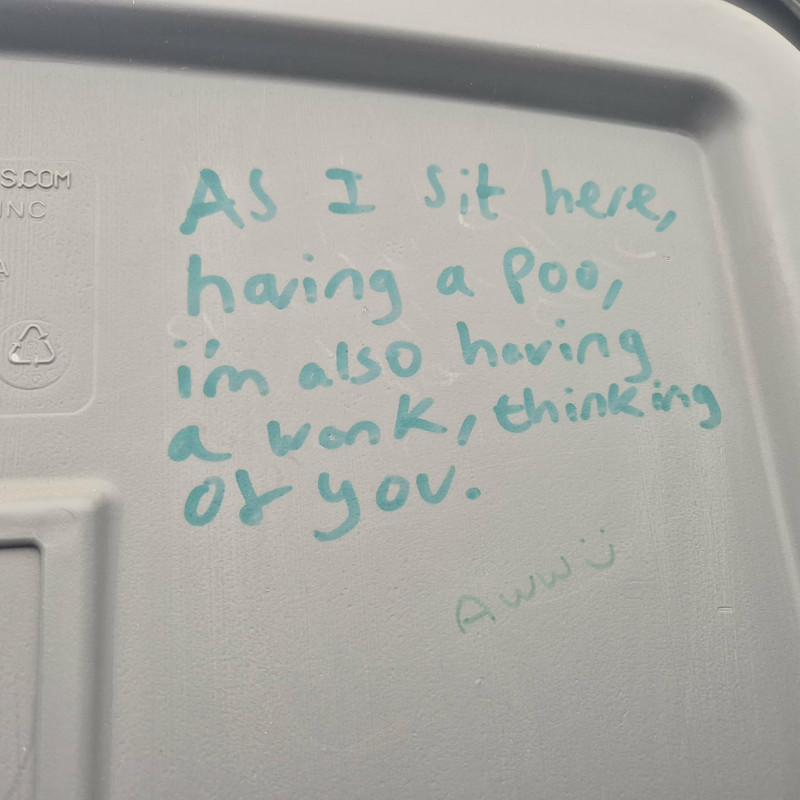 S.COM
INC
A
As I sit here,
having a poo,
i'm also having
a wank, thinking
of you.
Aww Ü